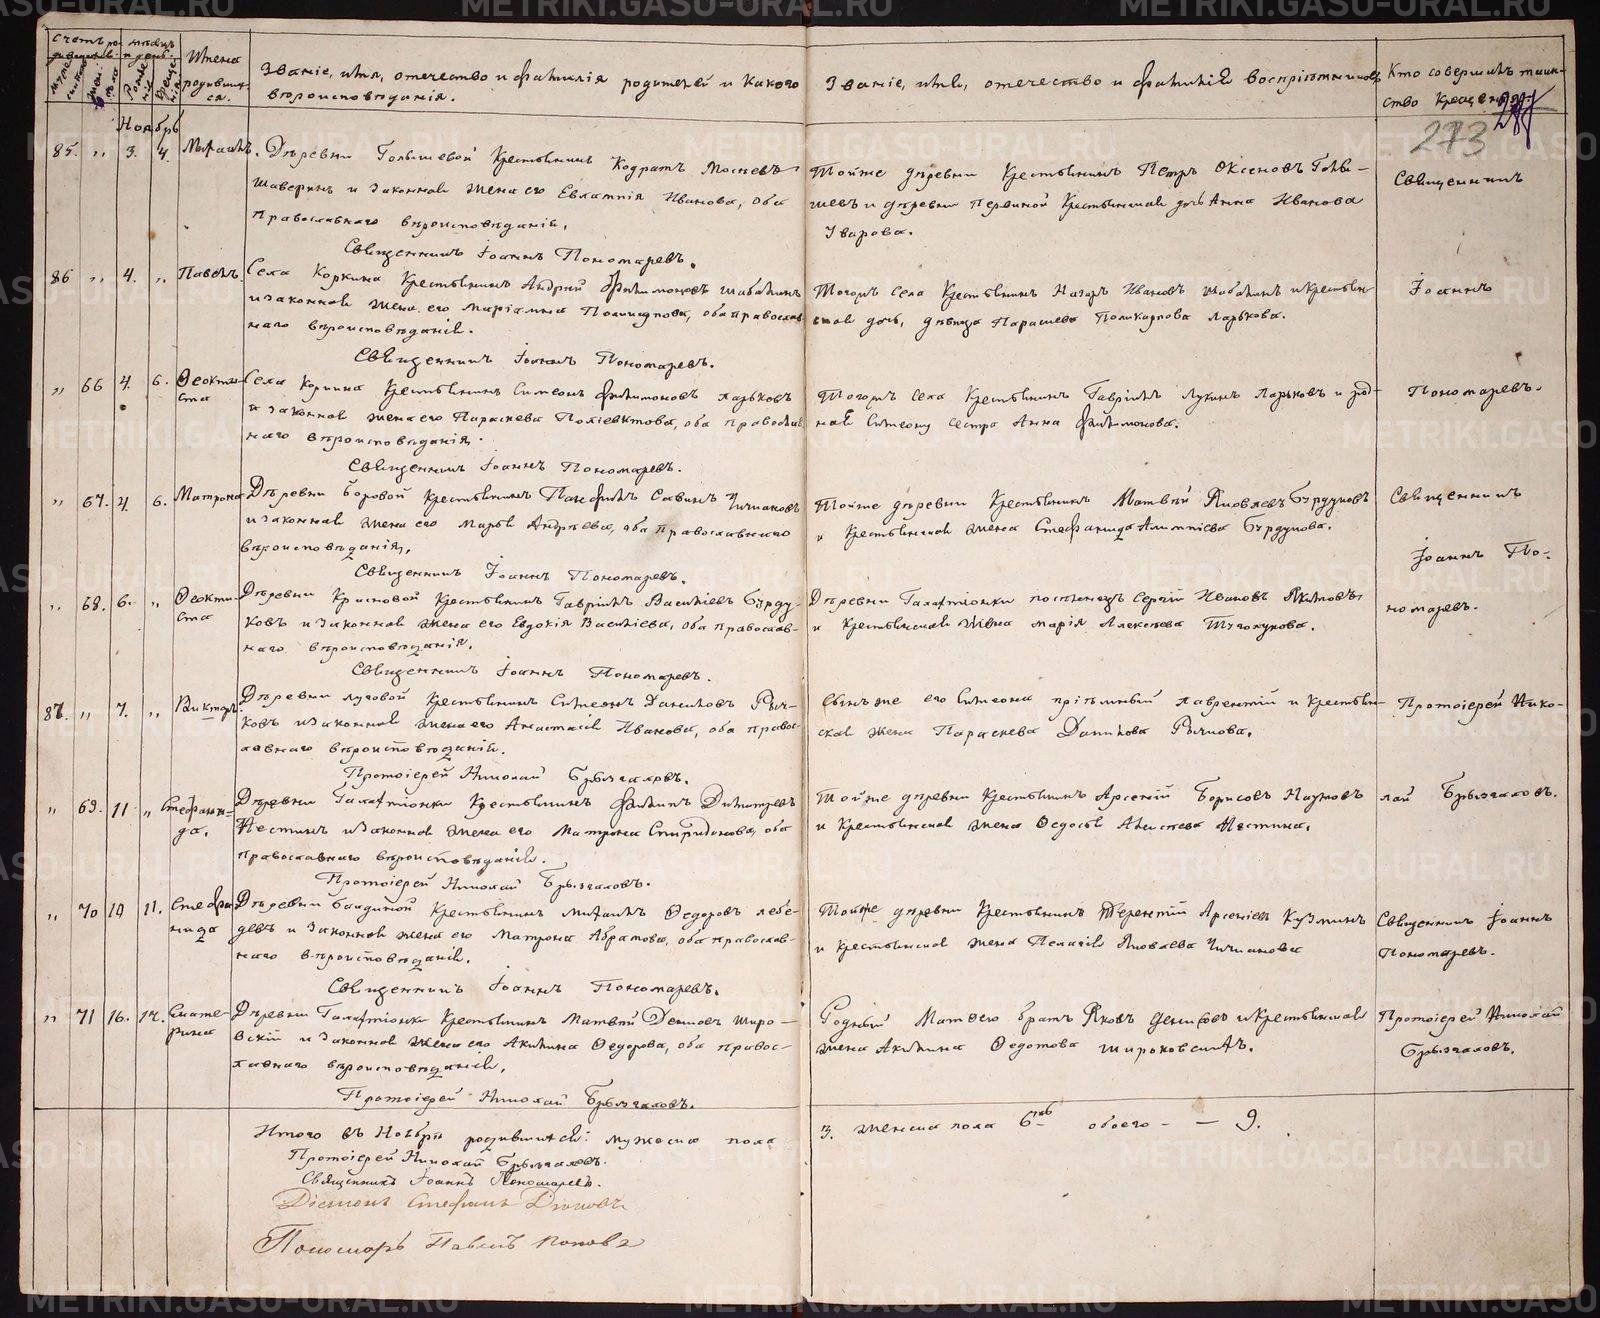 Счетъ родившихся
Мѣсяцъ и день
Имена родившихся.
Званіе, имя, отечество и фамилія родителей и какого
вѣроисповѣданія.
Званіе, имя, отечество и фамилія воспріемниковъ
Кто совершалъ таин-
ство крещенія.
Ноябрь
273
85. „ 3. 4. Михаилъ.
Деревни Крестьянинъ Кодратъ
и законная жена его Евлампія Иванова, оба
православнаго вѣроисповѣданія.
Священникъ Іоаннъ Пономаревъ.
Тойже деревни Крестьянинъ Петръ
и деревни Крестьянская дочь Анна Иванова
Уварова.
Священникъ
86 „ 4. „ Павелъ.
Села Коркина Крестьянинъ Андрей Филимоновъ Шабалинъ
и законная жена его Маріамна оба православ
наго вѣроисповѣданія.
Священникъ Іоаннъ Пономаревъ.
Тогожъ села Крестьянинъ Назаръ Ивановъ Шабалинъ и крестьян
ская дочь, дѣвица Параскева Поликарпова Ларькова.
Іоаннъ
„ 66 4. 6. Ѳеокти-
ста
Села Коркина Крестьянинъ Симеонъ Филимоновъ Ларьковъ
и законная жена его Параскева Поліевктова, оба православ
наго вѣроисповѣданія.
Священникъ Іоаннъ Пономаревъ.
Тогожъ села Крестьянинъ Гавріилъ Лукинъ Ларьковъ и род-
ная Симеону сестра Анна Филимонова.
Пономаревъ.
„ 67. 4. 6. Матрона
Деревни Боровой Крестьянинъ Панфилъ Савинъ Чичкановъ
и законная жена его Марья Андреева, оба православнаго
вѣроисповѣданія.
Священникъ Іоаннъ Пономаревъ.
Тойже деревни Крестьянинъ Матвѣй Яковлевъ Бурдуковъ
и Крестьянская жена Стефанида Алимпіева Бурдукова.
Священникъ
Іоаннъ По-
„ 68. 6. „ Ѳеокти-
ста
Деревни Крестьянинъ Гавріилъ Васильевъ Бурду-
ковъ и законная жена его Евдокія Васильева, оба православ-
наго вѣроисповѣданія.
Священникъ Іоаннъ Пономаревъ.
Деревни Галактіонки Сергій Ивановъ Якимовъ
и Крестьянская жена Марія Алексѣева
номаревъ.
87. „ 7. „ Викторъ
Деревни Луговой Крестьянинъ Симеонъ Даниловъ Рыч-
ковъ и законная жена его Анастасія Иванова, оба правос-
лавнаго вѣроисповѣданія.
Протоіерей Николай Брызгаловъ.
Сынъ же его Симеона пріемный Лаврентій и крестьян-
ская жена Параскева Данилова Рычкова.
Протоіерей Нико-
„ 69. 11 „ Стефани-
да.
Деревни Галактіонки Крестьянинъ Филипъ Димитревъ
Нестинъ и законная жена его Матрона Спиридонова, оба
православнаго вѣроисповѣданія.
Протоіерей Николай Брызгаловъ.
Тойже деревни Крестьянинъ Арсеній Борисовъ Наумовъ
и Крестьянская жена Ѳедосья Алексѣева Нестина.
лай Брызгаловъ.
„ 70 10 11. Стефа
нида
Деревни Крестьянинъ Михаилъ Ѳедоровъ Лебе-
девъ и законная жена его Матрона оба православ-
наго вѣроисповѣданія.
Священникъ Іоаннъ Пономаревъ.
Тойже деревни Крестьянинъ Терентій Арсеніевъ Кузминъ
и Крестьянская жена Пелагія Яковлева Чичканова
Священникъ Іоаннъ
Пономаревъ.
„ 71 16. 17. Екате-
рина
Деревни Галактіонки Крестьянинъ Матвѣй Денисовъ Широ-
вскій и законная жена его Акилина Ѳедорова, оба правос-
лавнаго вѣроисповѣданія.
Протоіерей Николай Брызгаловъ.
Родный Матвею братъ Яковъ Денисовъ и крестьянская
жена Акилина Ѳедотова
Протоіерей Николай
Брызгаловъ.
Итого въ Ноябрѣ родившихся: мужеска пола
3. женска пола 6 обоего — 9.
Протоіерей Николай Брызгаловъ.
Священникъ Іоаннъ Пономаревъ.
Діаконъ Стефанъ
Пономарь Павелъ Поповъ